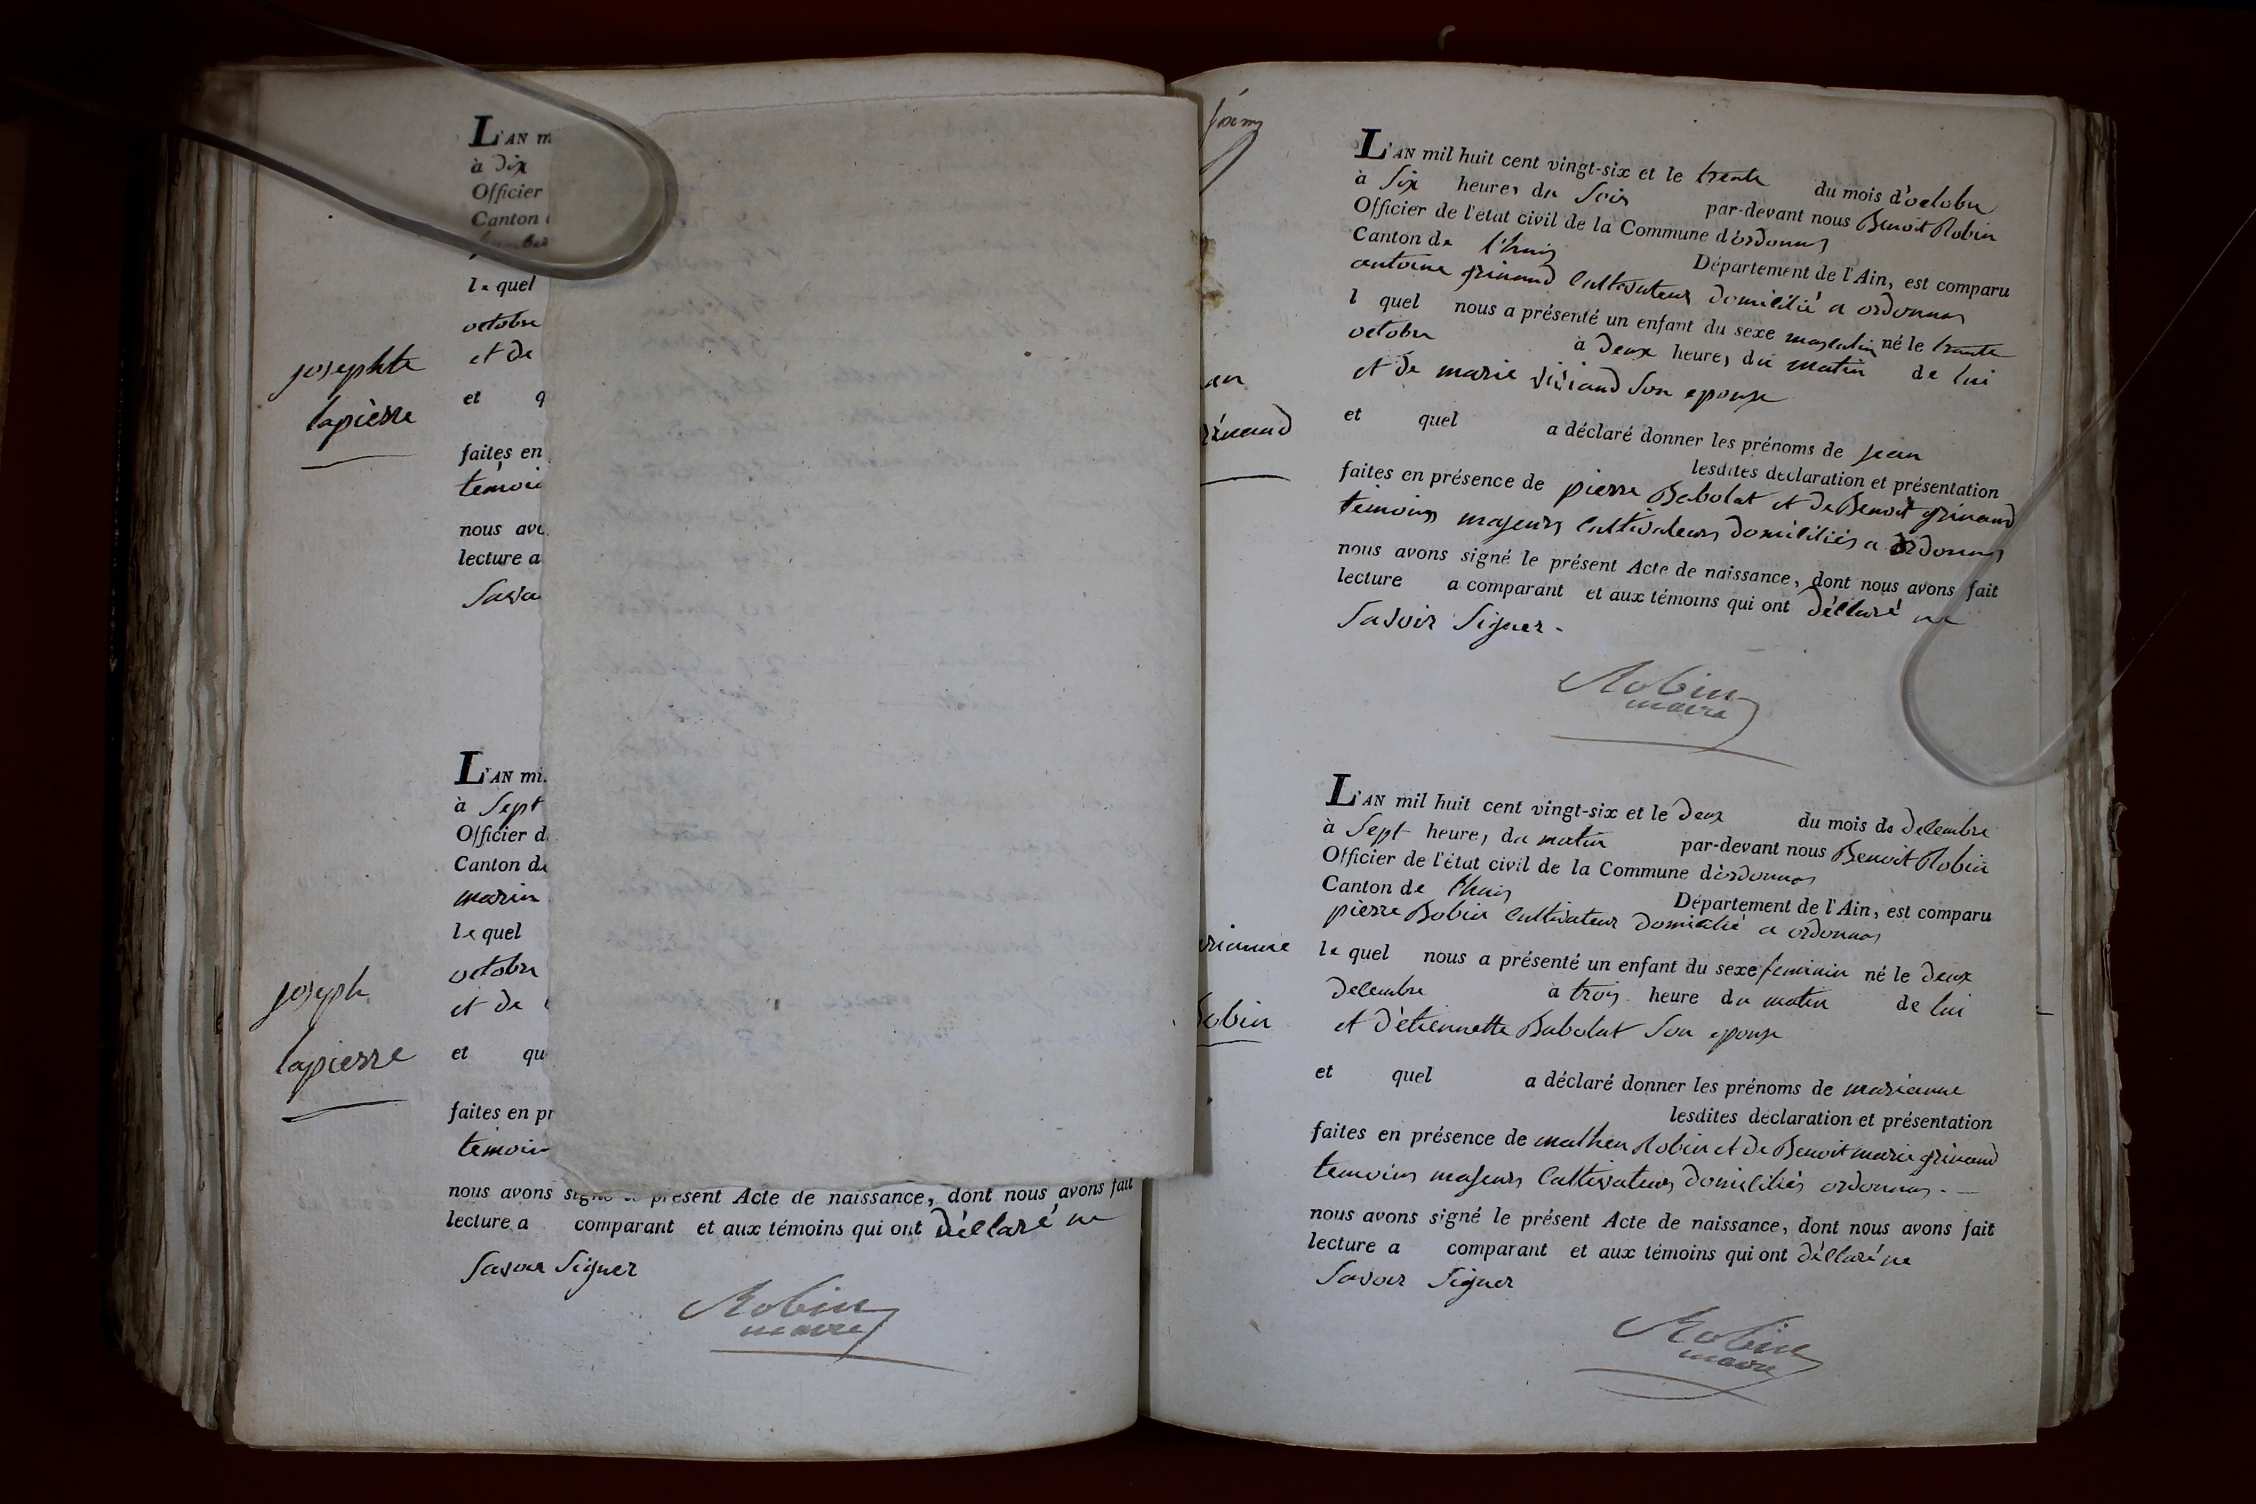 L'AN m
à Dix
Officier
Canton
le quel
octobre
et de
josephte
lapierre
et q
faites en
témoi
nous avo
lecture a
Savo
L'AN mi
à Sept
Officier d
Canton de
marin
le quel
octobre
et de
joseph
lapierre
et qu
faites en pr
témoin
nous avons signé le présent Acte de naissance, dont nous avons fait
lecture a comparant et aux témoins qui ont déclaré ne
Savoir Signer
Robin
maire
L'AN mil huit cent vingt-six et le trente du mois d'octobre
à Six heures du Soir par-devant nous Benoit Robin
Officier de l'état civil de la Commune d'ordonnas
Canton de l'huis Département de l'Ain, est comparu
antoine grinand Cultivateur domicilié a ordonnas
l quel nous a présenté un enfant du sexe masculin né le trente
octobre à Deux heures du matin de lui
et de marie Son epouse
an
rinand
et quel a déclaré donner les prénoms de jean
lesdites déclaration et présentation
faites en présence de pierre Babolat et de Benoit grinand
témoins majeurs Cultivateurs domiciliés a ordonnas
nous avons signé le présent Acte de naissance, dont nous avons fait
lecture a comparant et aux témoins qui ont déclaré ne
Savoir Signer.
Robin
maire
L'AN mil huit cent vingt-six et le Deux du mois de decembre
à Sept heures du matin par-devant nous Benoit Robin
Officier de l'état civil de la Commune d'ordonnas
Canton de l'huis Département de l'Ain, est comparu
pierre Bobin Cultivateur domicilié a ordonnas
le quel nous a présenté un enfant du sexe feminin né le Deux
decembre à trois heure du matin de lui
et d'étiennette Babolat Son epouse
rianne
obin
et quel a déclaré donner les prénoms de marianne
lesdites déclaration et présentation
faites en présence de mathieu Robin et de Benoit marie grinand
temoins majeurs Cultivateurs domiciliés ordonnas. —
nous avons signé le présent Acte de naissance, dont nous avons fait
lecture a comparant et aux témoins qui ont déclaré ne
Savoir Signer
Robin
maire